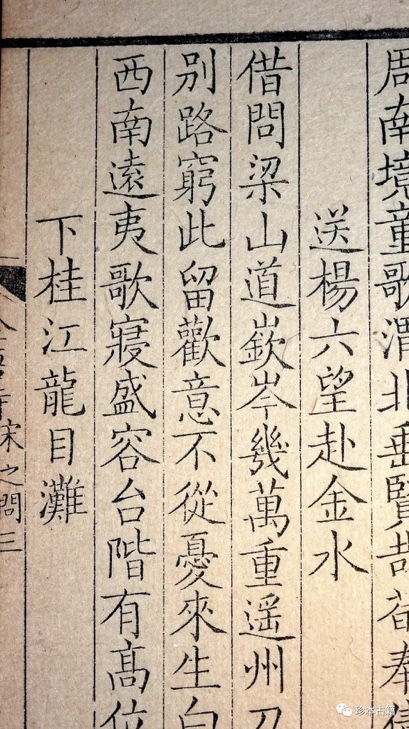 周南境童歌渭北垂賢哉荀奉
送楊六望赴金水
借問梁山道嶔岑幾萬重遥州刀
別路窮此留歡意不從憂來生白
西南遠夷歌寢盛容台階有高位
下桂江龍目灘
宋之問三
珍本古籍